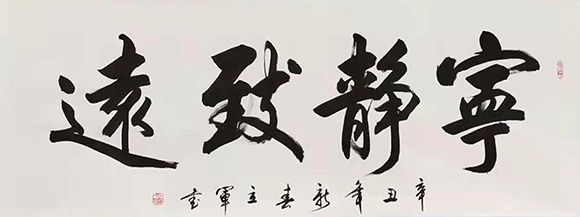 寧靜致遠
辛丑年新春立軍書